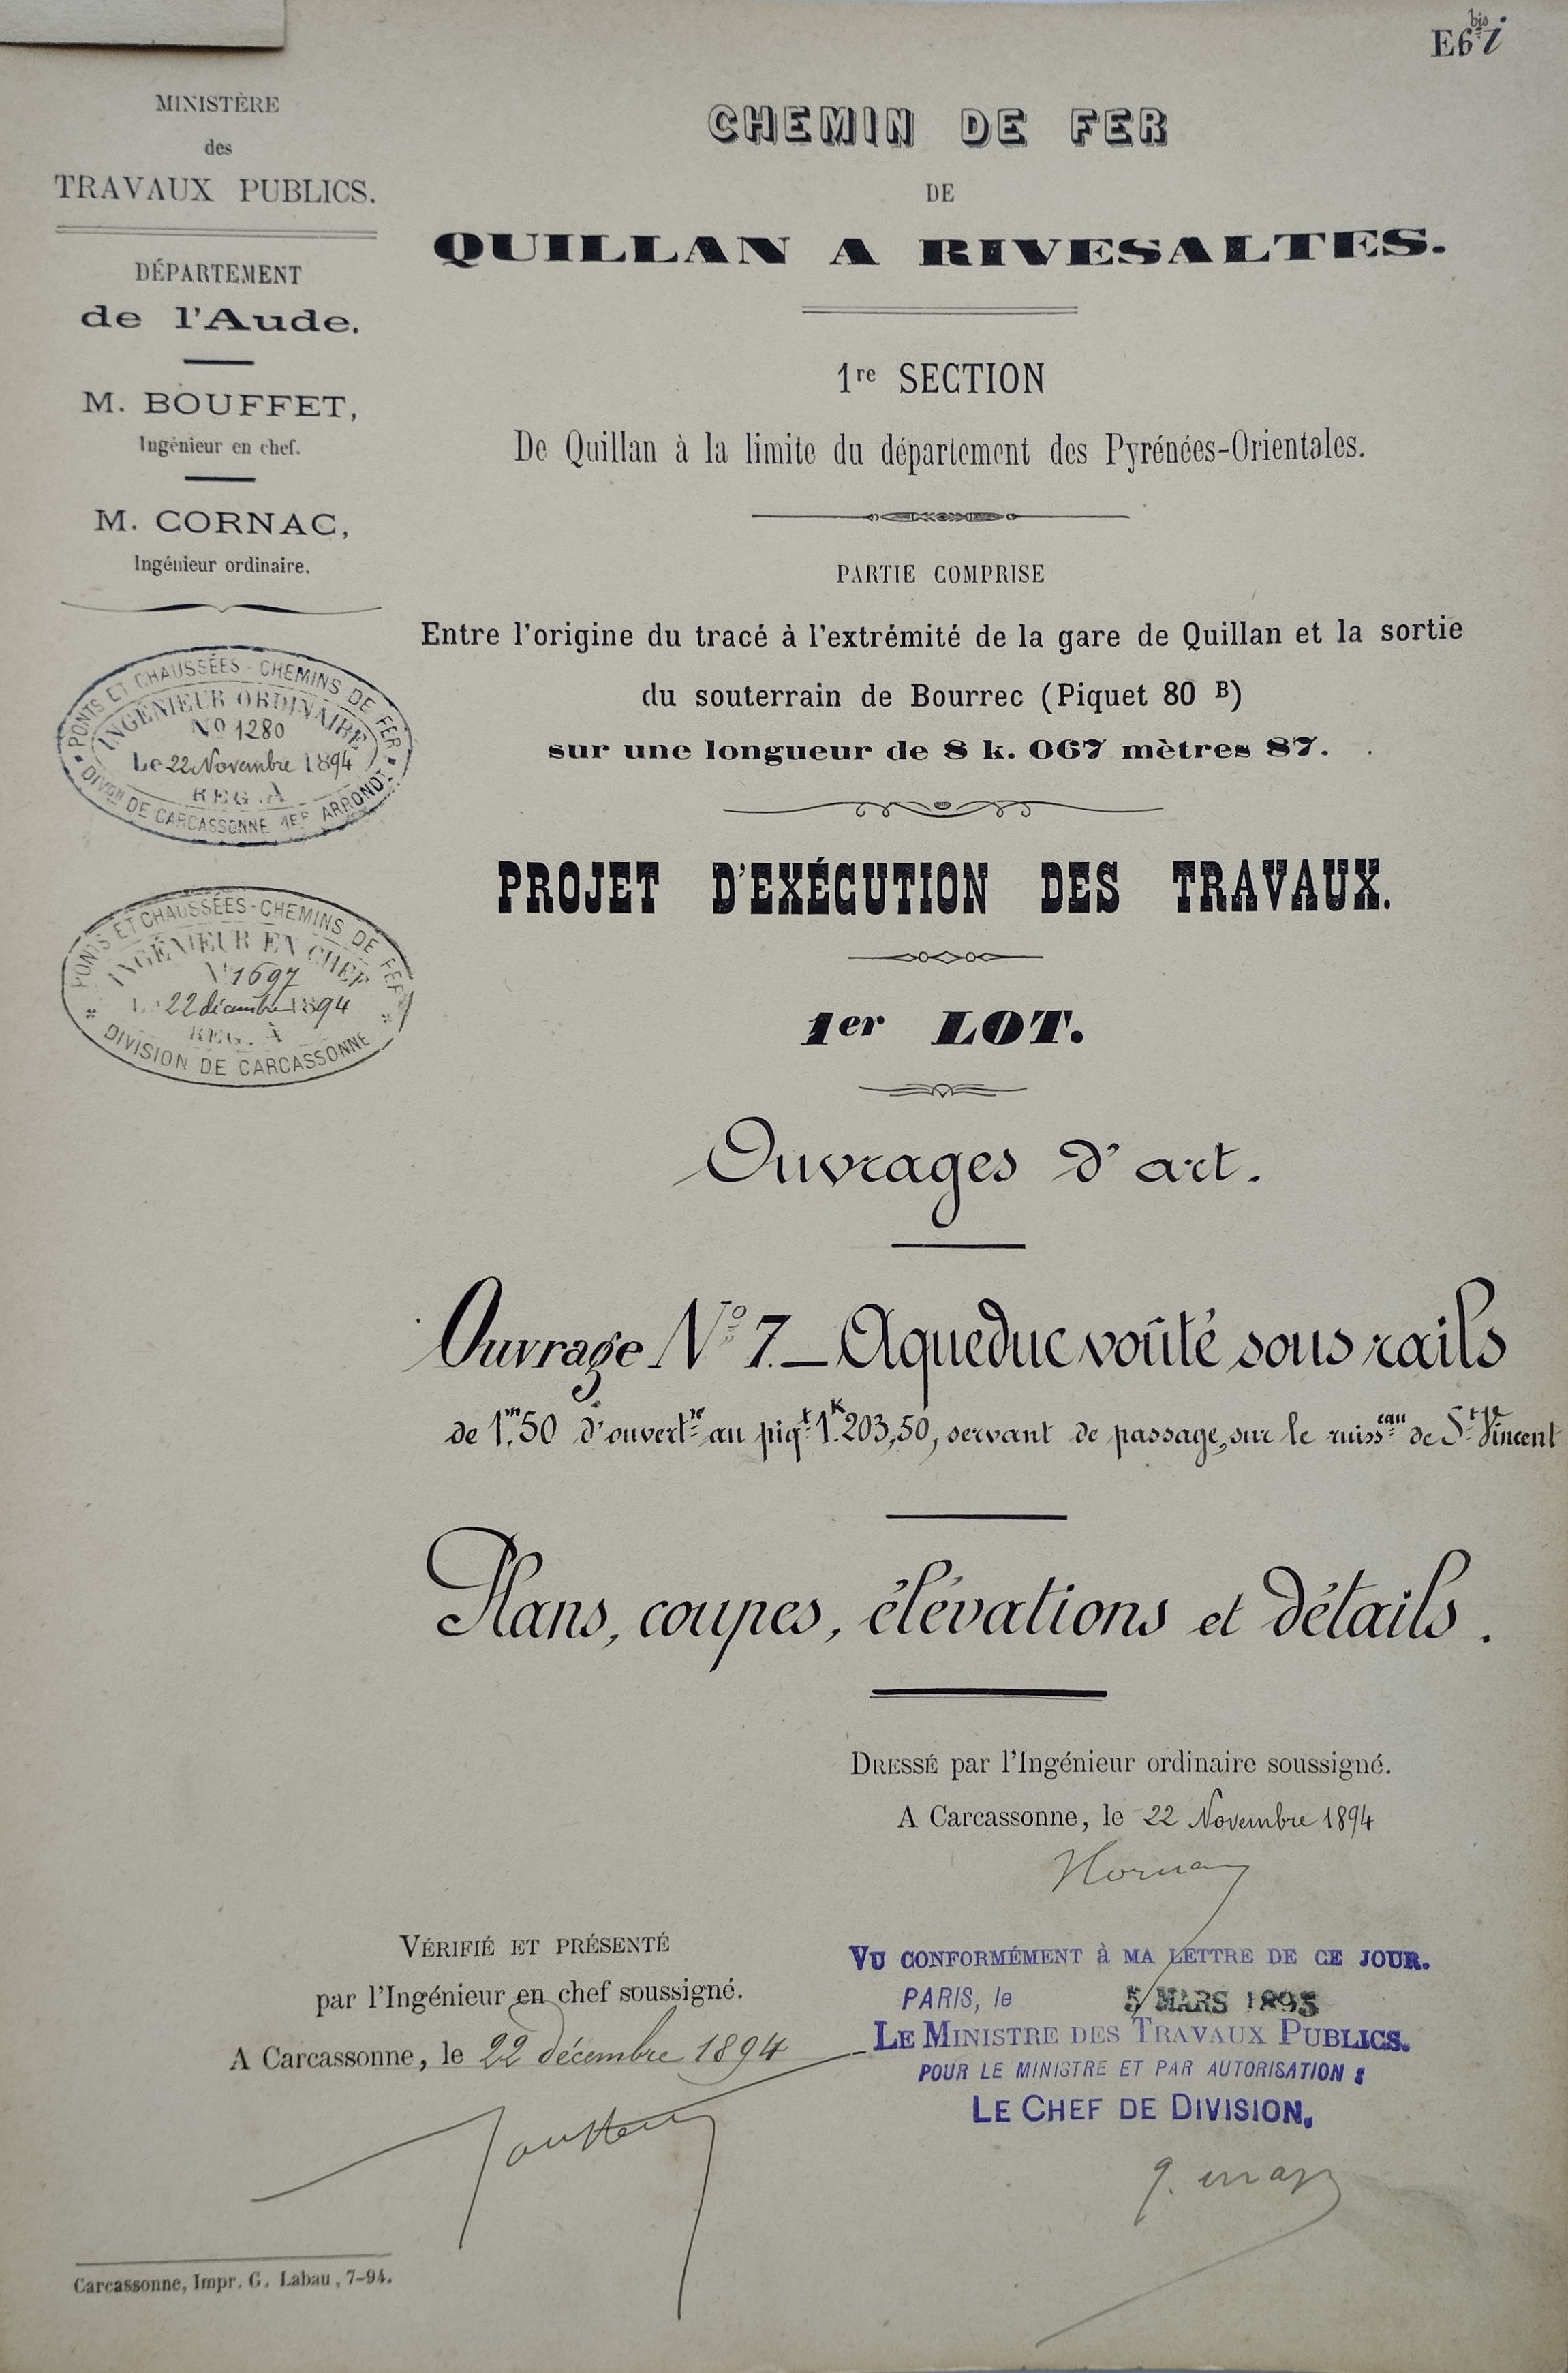 E6 bis i
MINISTÈRE
des
TRAVAUX PUBLICS.
DÉPARTEMENT
de l'Aude.
M. BOUFFET,
Ingénieur en chef.
M. CORNAC,
Ingénieur ordinaire.
PONTS ET CHAUSSÉES - CHEMINS DE FER
INGÉNIEUR ORDINAIRE
No 1280
Le 22 Novembre 1894
REG. A
DIVon DE CARCASSONNE 1ER ARRONDt
PONTS ET CHAUSSÉES - CHEMINS DE FER
INGÉNIEUR EN CHEF
N° 1697
Le 22 décembre 1894
REG. A
DIVISION DE CARCASSONNE
CHEMIN DE FER
DE
QUILLAN A RIVESALTES.
1re SECTION
De Quillan à la limite du département des Pyrénées-Orientales.
PARTIE COMPRISE
Entre l'origine du tracé à l'extrémité de la gare de Quillan et la sortie
du souterrain de Bourrec (Piquet 80 B)
sur une longueur de 8 k. 067 mètres 87.
PROJET D'EXÉCUTION DES TRAVAUX.
1er LOT.
Ouvrages d'art.
Ouvrage N° 7. — Aqueduc voûté sous rails
de 1m,50 d'ouvertre au piqt 1K.203,50, servant de passage, sur le ruisseau de St Vincent
Plans, coupes, élévations et détails.
DRESSÉ par l'Ingénieur ordinaire soussigné.
A Carcassonne, le 22 Novembre 1894
VÉRIFIÉ ET PRÉSENTÉ
par l'Ingénieur en chef soussigné.
A Carcassonne, le 22 décembre 1894
VU CONFORMÉMENT à MA LETTRE DE CE JOUR.
PARIS, le 5 MARS 1895
LE MINISTRE DES TRAVAUX PUBLICS.
POUR LE MINISTRE ET PAR AUTORISATION :
LE CHEF DE DIVISION,
Carcassonne, Impr. G. Labau, 7-94.